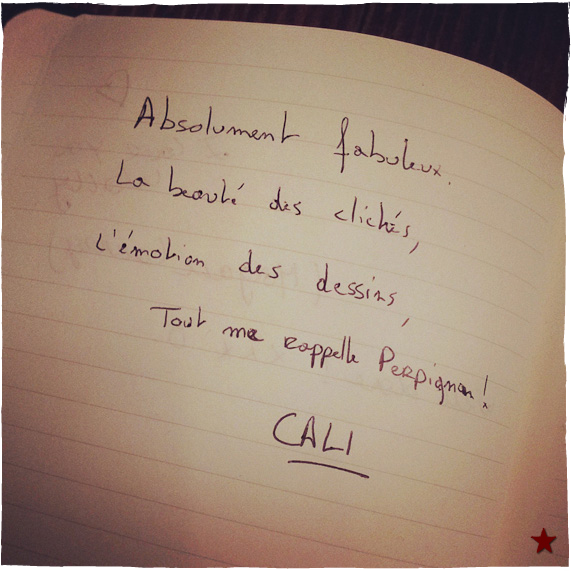 Absolument fabuleux.
La beauté des clichés,
L'émotion des dessins,
Tout me rappelle Perpignan!
CALI